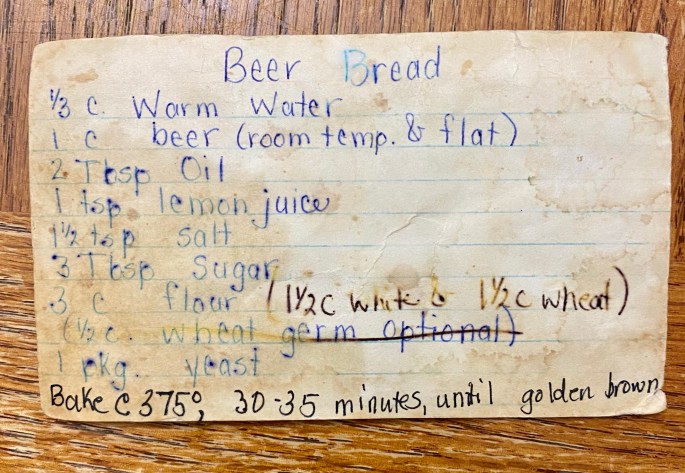 Beer Bread
1/3 c. Warm Water
1 c beer (room temp. & flat)
2 Tbsp Oil
1 tsp lemon juice
1 1/2 tsp salt
3 Tbsp Sugar
3 c flour (1 1/2 c white & 1 1/2 c wheat)
(1/2 c. wheat germ optional)
1 pkg. yeast
Bake @ 375°, 30-35 minutes, until golden brown